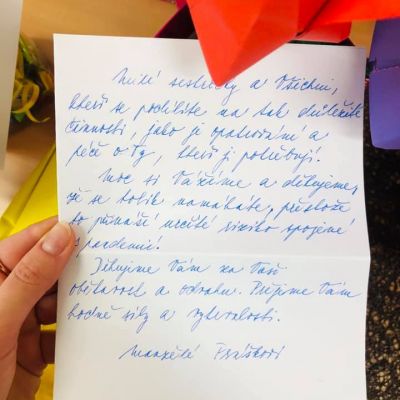 Milé sestřičky a Všichni,
kteří se podílíte na tak důležité
činnosti, jako je opatrování a
péče o ty, kteří ji potřebují.
Moc si Vážíme a děkujeme,
že se tolik namáháte, přestože
to přináší určité riziko spojené
s pandemií.
Děkujeme Vám za Vaši
obětavost a odvahu. Přejeme Vám
hodně síly a vytrvalosti.
manželé Práškovi